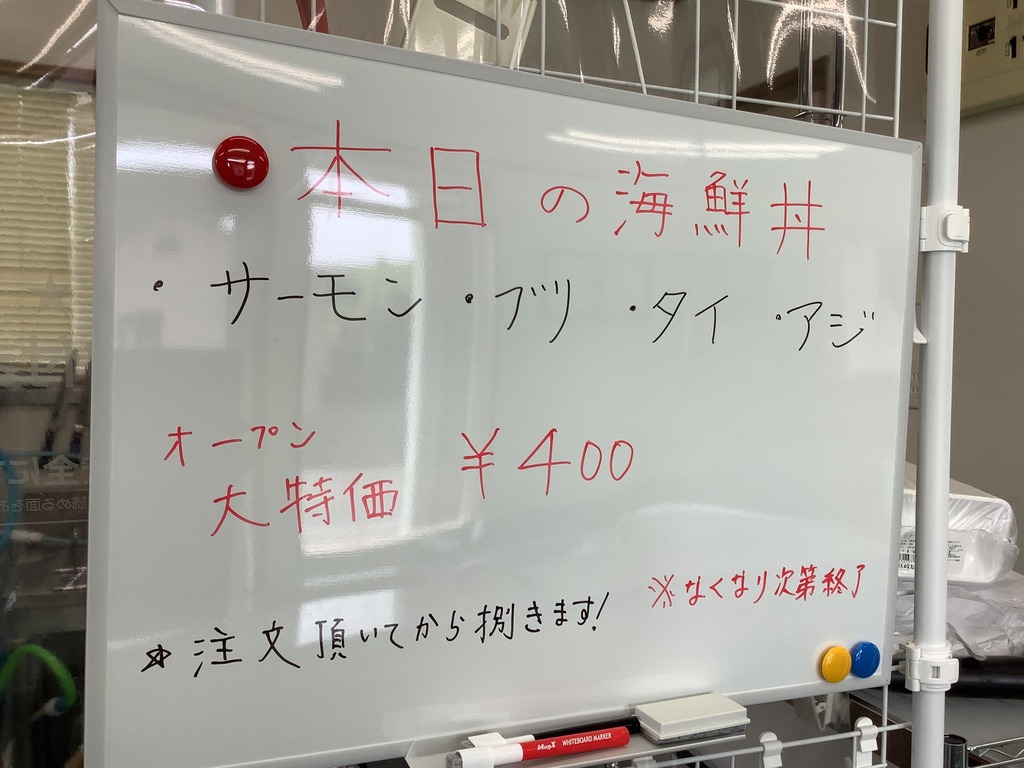 本日の海鮮丼
・サーモン・ブリ・タイ・アジ
オープン
大特価 ¥400
※なくなり次第終了
☆注文頂いてから捌きます!
MagX WHITEBOARD MARKER